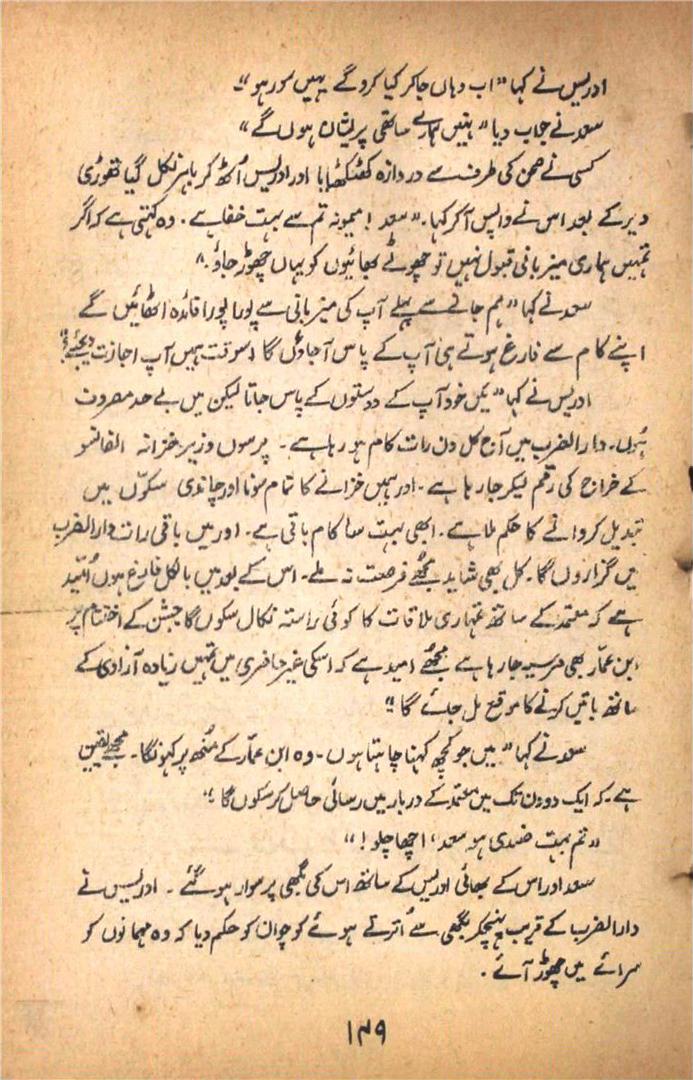 ادریس نے کہا "اب وہاں جا کر کیا کرو گے یہیں سو رہو"
سعد نے جواب دیا "نہیں ہمارے ساتھی پریشان ہوں گے"
کسی نے صحن کی طرف سے دروازہ کھٹکھٹایا اور ادریس اُٹھ کر باہر نکل گیا تھوڑی
دیر کے بعد اس نے واپس آ کر کہا۔ "سعد! میمونہ تم سے بہت خفا ہے۔ وہ کہتی ہے کہ اگر
تمہیں ہماری میزبانی قبول نہیں تو چھوٹے بھائیوں کو یہاں چھوڑ جاؤ۔"
سعد نے کہا "ہم جانے سے پہلے آپ کی میزبانی سے پورا پورا فائدہ اٹھائیں گے
اپنے کام سے فارغ ہوتے ہی آپ کے پاس آ جاؤں گا اسوقت ہمیں آپ اجازت دیجئے"
ادریس نے کہا "میں خود آپ کے دوستوں کے پاس جاتا لیکن میں بے حد مصروف
ہُوں۔ دارالضرب میں آج کل دن رات کام ہو رہا ہے۔ پرسوں وزیرِ خزانہ الفانسو
کے خراج کی رقم لیکر جا رہا ہے۔ اور ہمیں خزانے کا تمام سونا اور چاندی سکوّں میں
تبدیل کروانے کا حکم ملا ہے۔ ابھی بہت سا کام باقی ہے۔ اور میں باقی رات دارالضرب
میں گزاروں گا۔ کل بھی شاید مجھے فرصت نہ ملے۔ اس کے بعد میں بالکل فارغ ہوں اُمّید
ہے کہ معتمد کے ساتھ تمہاری ملاقات کا کوئی راستہ نکال سکوں گا جشن کے اختتام پر
ابن عمّار بھی مرسیہ جا رہا ہے مجھے امید ہے کہ اسکی غیر حاضری میں تمہیں زیادہ آزادی کے
ساتھ باتیں کرنے کا موقع مل جائے گا"
سعد نے کہا "میں جو کچھ کہنا چاہتا ہوں۔ وہ ابن عمّار کے مُنھ پر کہونگا۔ مجھے یقین
ہے۔ کہ ایک دو دن تک میں معتمد کے دربار میں رسائی حاصل کر سکوں گا"
"تم بہت ضدی ہو سعد، اچھا چلو!"
سعد اور اس کے بھائی ادریس کے ساتھ اس کی بگھی پر سوار ہو گئے۔ ادریس نے
دارالضرب کے قریب پہنچکر بگھی سے اُترتے ہوئے کوچوان کو حکم دیا کہ وہ مہمانوں کو
سرائے میں چھوڑ آئے۔
۱۴۹